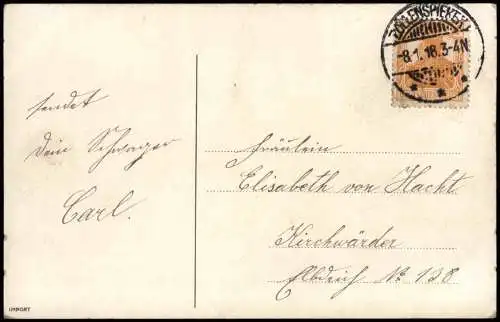 ZOLLENSPIEKER
-8.1.18.3-4N
* * *
sendet
Dein Schwager
Carl.
Fräulein
Elisabeth von Hacht
Kirchwärder
Elbdeich No 128
IMPORT